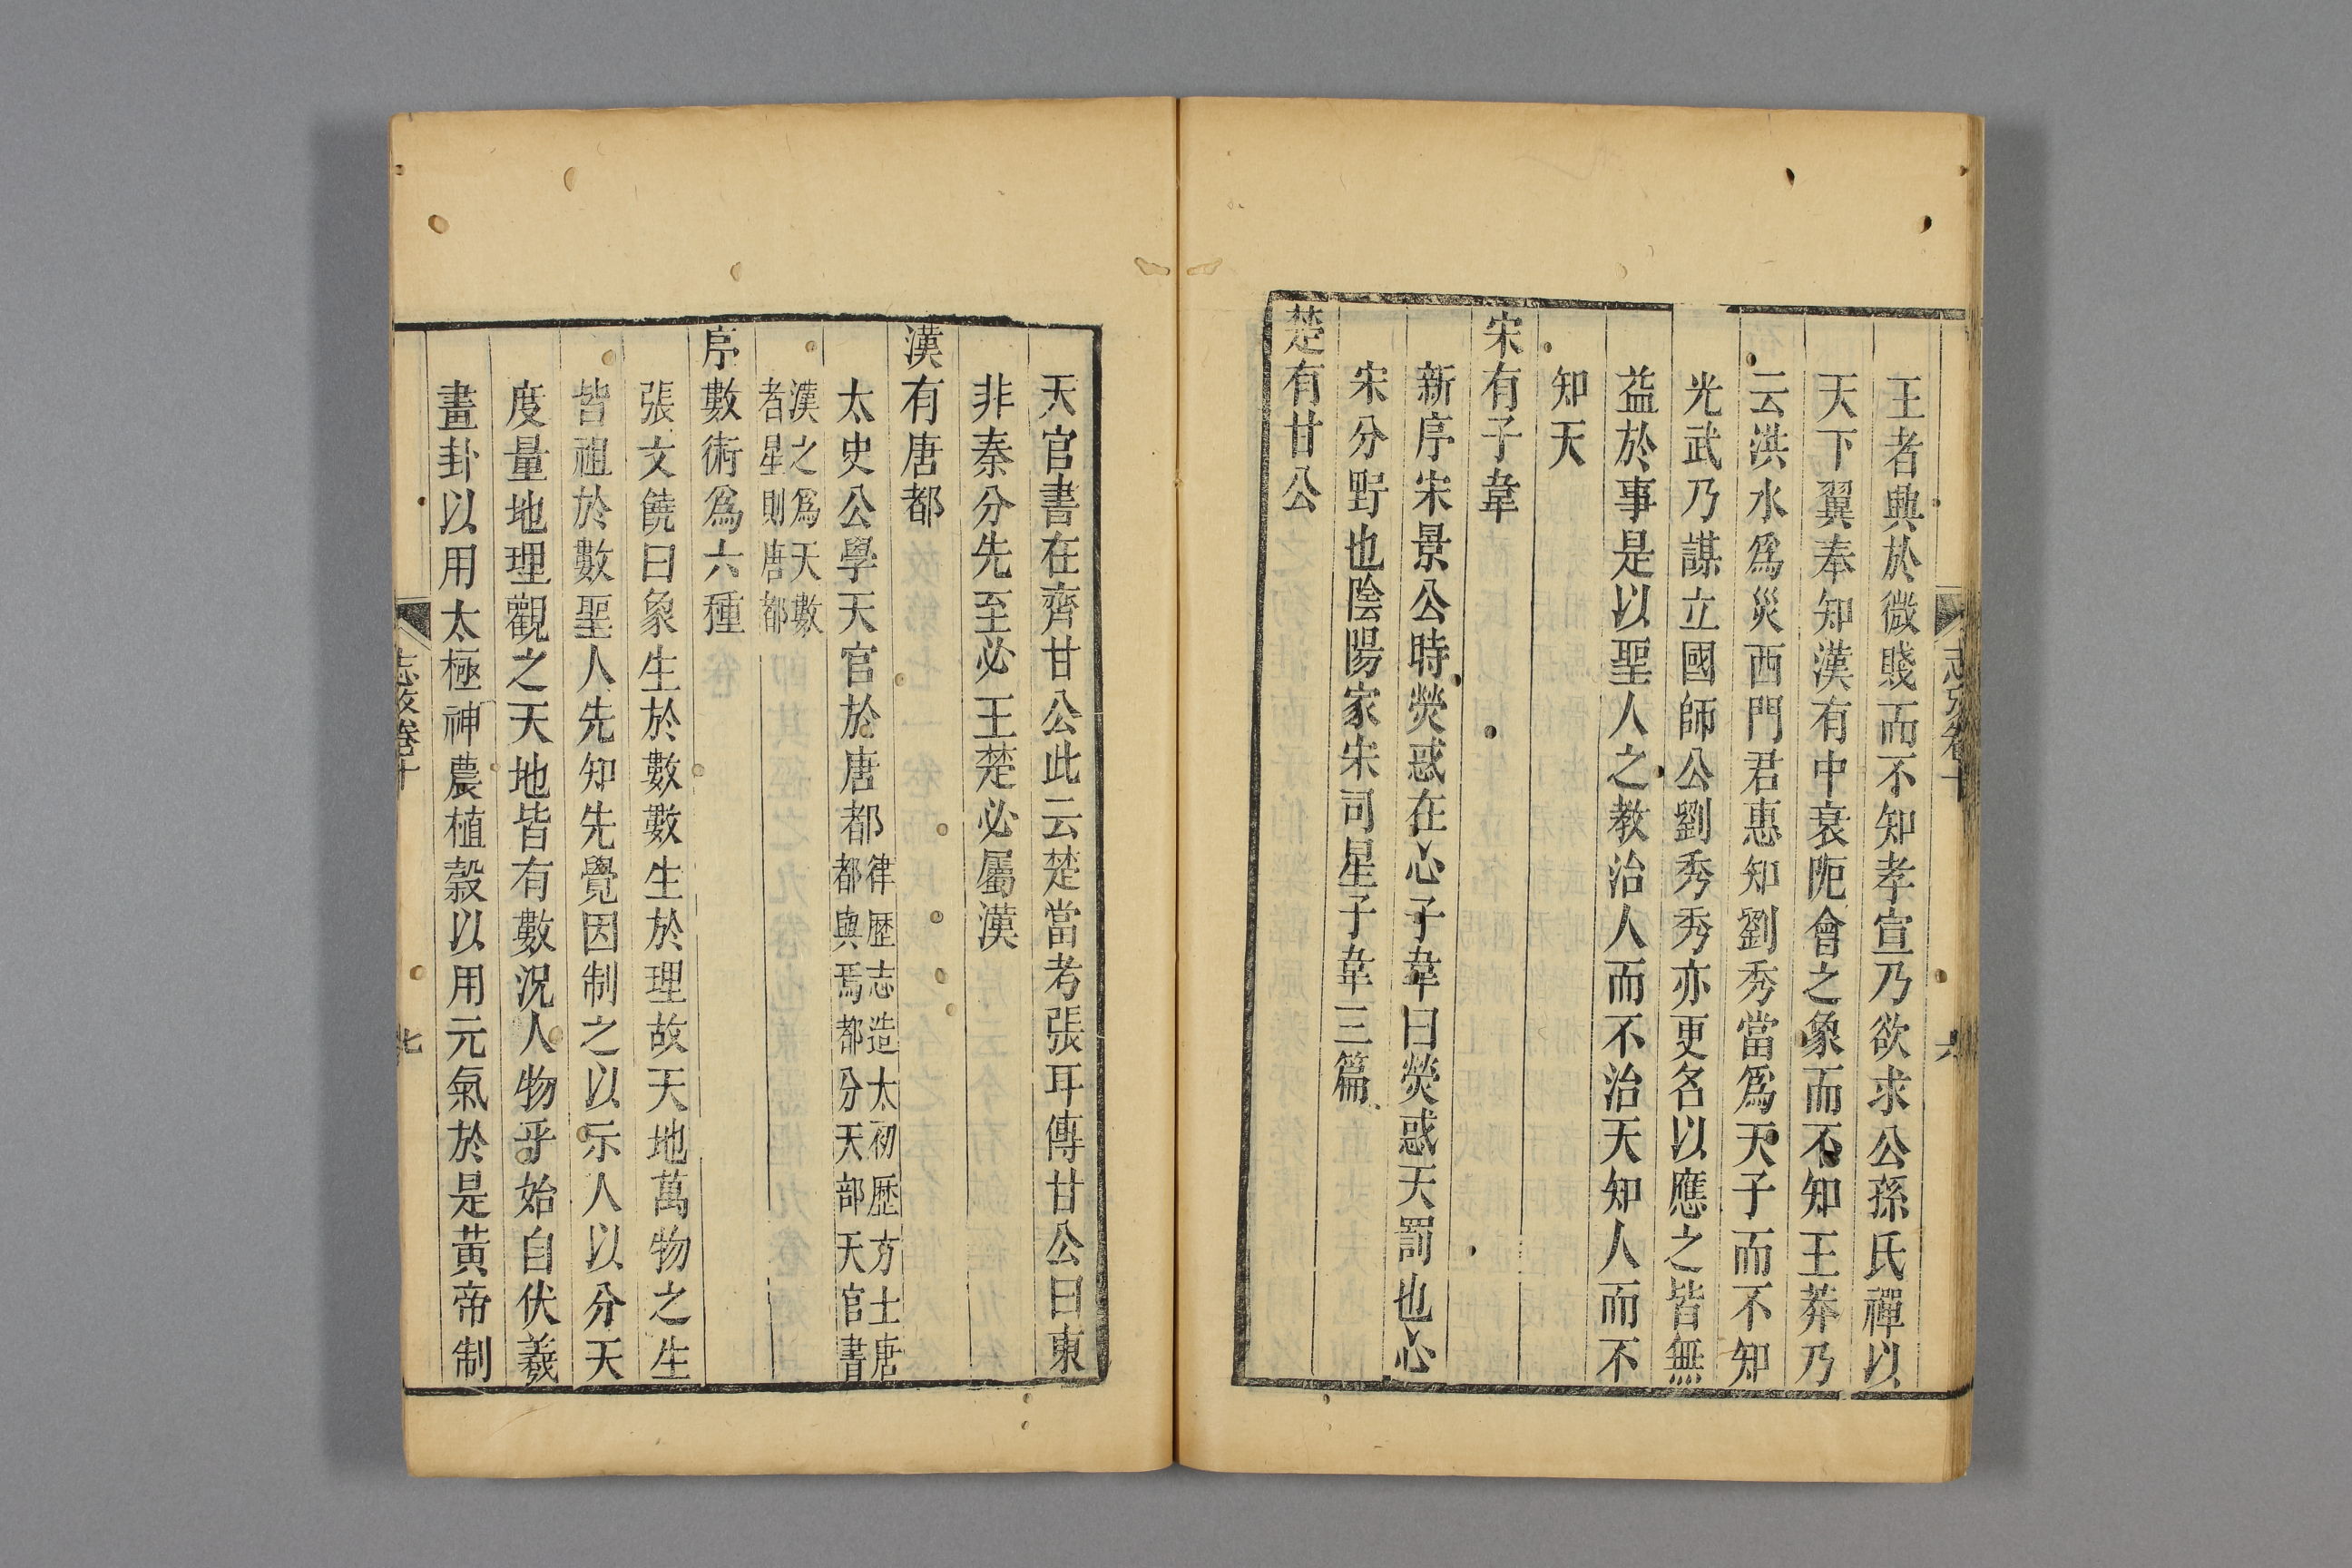 王者興於微賤而不知孝宣乃欲求公孫氏禪以
天下翼奉知漢有中衰阨會之象而不知王莽乃
云洪水爲災西門君惠知劉秀當爲天子而不知
光武乃謀立國師公劉秀秀亦更名以應之皆無
益於事是以聖人之教治人而不治天知人而不
知天
宋有子韋
新序宋景公時熒惑在心子韋曰熒惑天罰也心
宋分野也陰陽家宋司星子韋三篇
楚有甘公
天官書在齊甘公此云楚當考張耳傳甘公曰東
非秦分先至必王楚必屬漢
漢有唐都
太史公學天官於唐都律歷志造太初歷方士唐
都與焉都分天部天官書
漢之爲天數
者星則唐都
序數術爲六種
張文饒曰象生於數數生於理故天地萬物之生
皆祖於數聖人先知先覺因制之以示人以分天
度量地理觀之天地皆有數況人物乎始自伏羲
畫卦以用太極神農植穀以用元氣於是黃帝制
志攷卷十
七